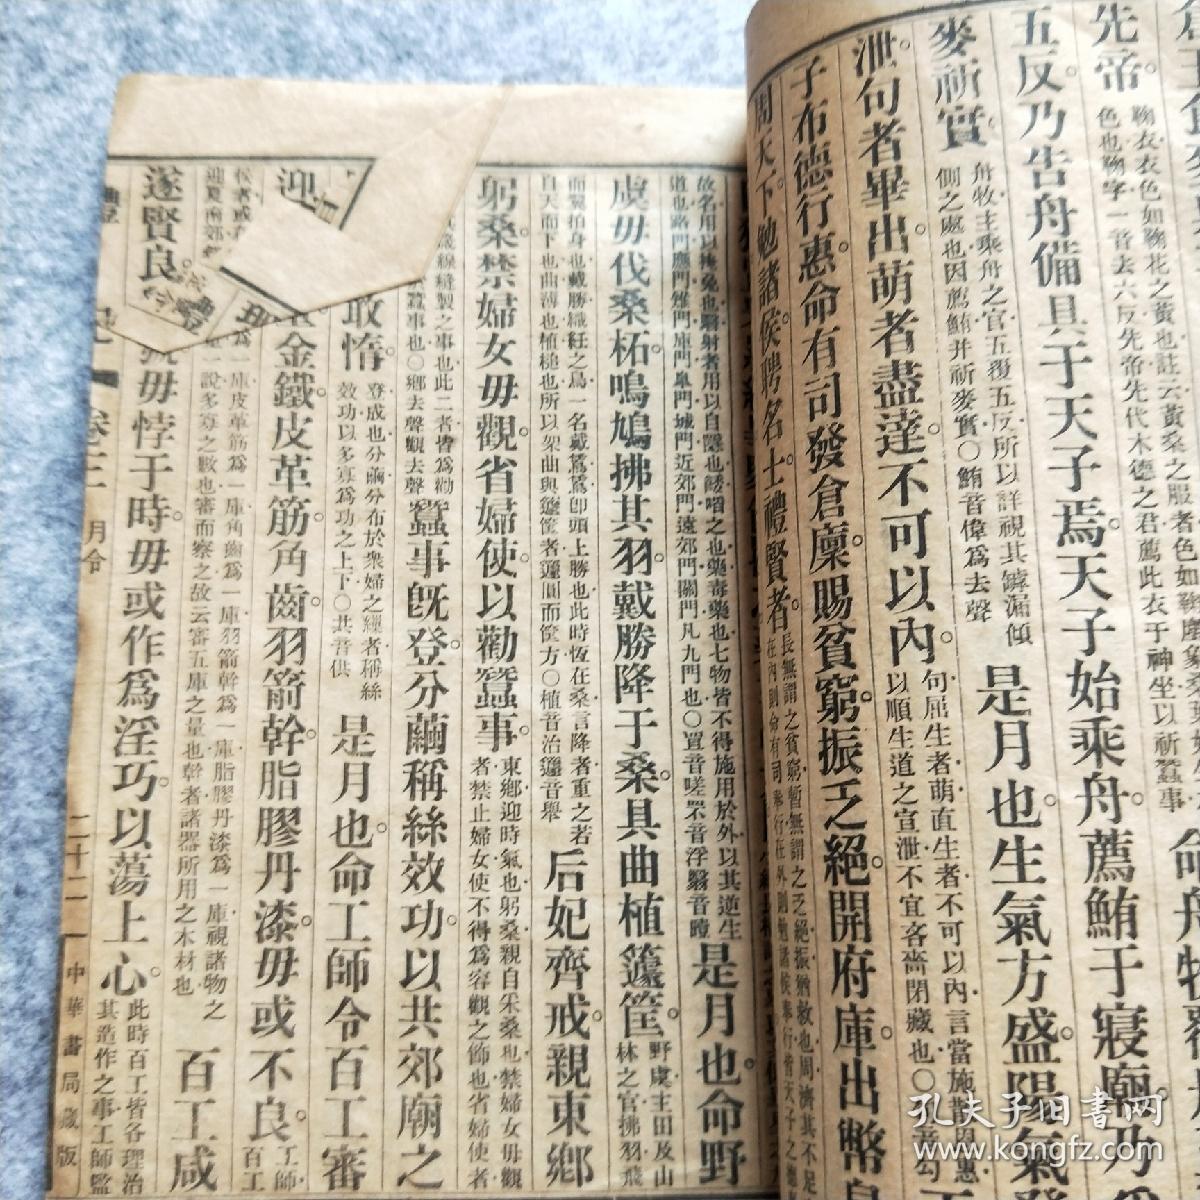 先帝
鞠衣衣色如鞠花之黃也註云黃桑之服者色如鞠塵
色也鞠字一音去六反先帝先代木德之君薦此衣于神坐以祈蠶事
五反乃告舟備具于天子焉天子始乘舟薦鮪于寢廟乃
麥祈實
舟牧主乘舟之官五覆五反所以詳視其罅漏傾
側之處也因薦鮪并祈麥實○鮪音偉為去聲
是月也生氣方盛陽氣
泄句者畢出萌者盡達不可以內
句屈生者萌直生者不可以內言當施散恩惠
以順生道之宣泄不宜吝嗇閉藏也○
子布德行惠命有司發倉廩賜貧窮振乏絕開府庫出幣
周天下勉諸侯聘名士禮賢者
長無謂之貧窮暫無謂之乏絕振猶救也周濟其不足
在內則命有司奉行在外則勉諸侯奉行皆天子之德
故名用以掩兔也翳射者用以自隱也餧啗之也藥毒藥也七物皆不得施用於外以其逆生
道也路門應門雉門庫門皐門城門近郊門遠郊門關門凡九門也○罝音嗟罘音浮翳音殪
是月也命野
虞毋伐桑柘鳴鳩拂其羽戴勝降于桑具曲植籧筐
野虞主田及山
林之官拂羽飛
而翼拍身也戴勝織紝之鳥一名戴鵀鵀卽頭上勝也此時恆在桑言降者重之若
自天而下也曲薄也植槌也所以架曲與籧筐者籧圓而筐方○植音治籧音舉
后妃齊戒親東鄉
躬桑禁婦女毋觀省婦使以勸蠶事
東鄉迎時氣也躬桑親自采桑也禁婦女毋觀
者禁止婦女使不得為容觀之飾也省婦使者
線縫製之事也此二者皆為勸
蠶事也○鄉去聲觀去聲
蠶事既登分繭稱絲效功以共郊廟之
敢惰
登成也分繭分布於衆婦之繅者稱絲
效功以多寡為功之上下○共音供
是月也命工師令百工審
金鐵皮革筋角齒羽箭幹脂膠丹漆毋或不良
工師
百工
為一庫皮革筋為一庫角齒為一庫羽箭幹為一庫脂膠丹漆為一庫視諸物之
說多寡之數也審而察之故云審五庫之量也幹者諸器所用之木材也
百工咸
毋悖于時毋或作爲淫巧以蕩上心
此時百工皆各理治
其造作之事工師監
遂賢良
迎
卷三 月令
二十二 中華書局藏版
孔夫子旧書网
www.kongfz.com